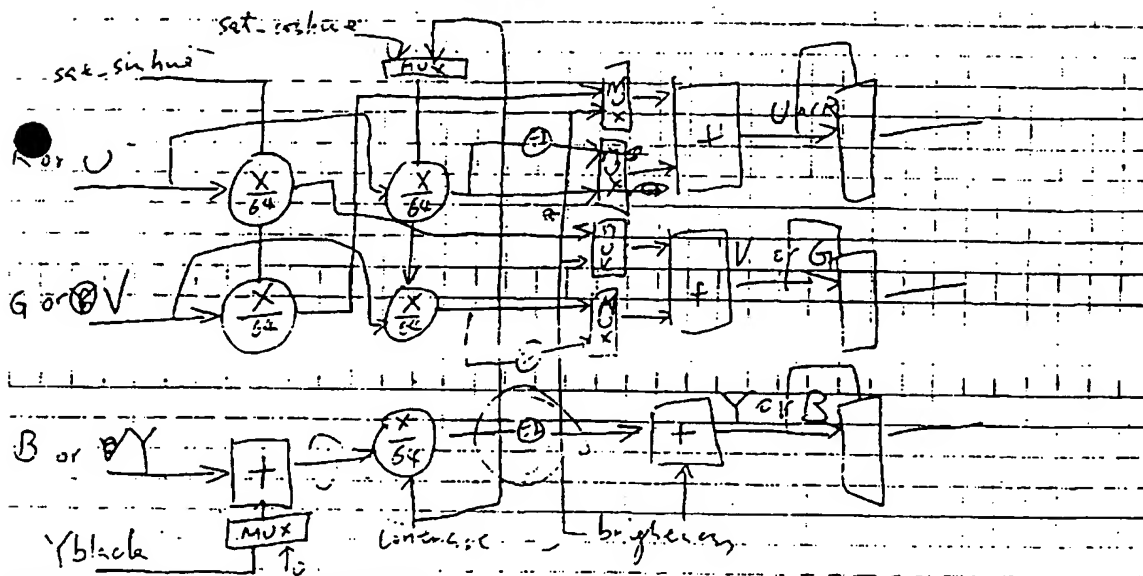 sat_coshue
MUX
sat_sinhue
R or U
X/64
X/64
MUX
MUX
+
U or R
G or V
X/64
X/64
MUX
MUX
+
V or G
B or Y
+
X/64
+
Y or B
MUX
Yblack
0
contrast
brightness